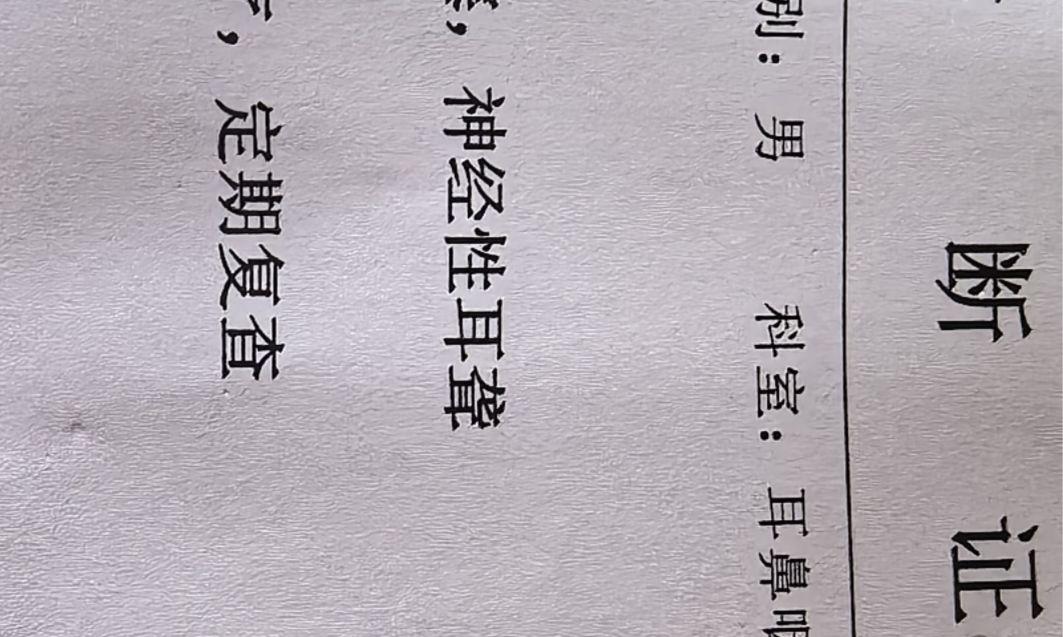 断 证
别：男 科室：耳鼻
，神经性耳聋
，定期复查